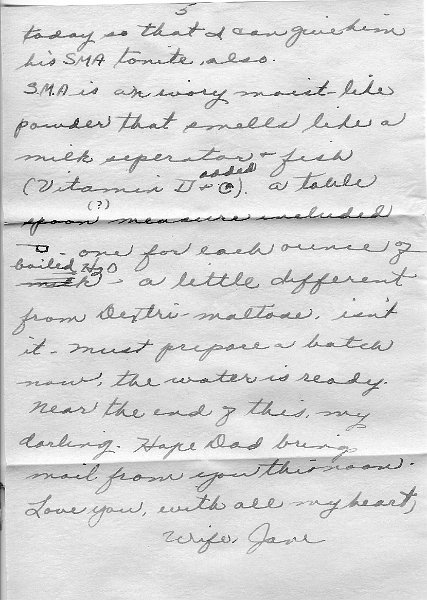 5
today so that I can give him
his SMA tonite, also.
S.M.A is an ivory moist-like
powder that smells like a
milk seperator & fish
added
(Vitamin D & C). a table
(?)
spoon measure included
- one for each ounce of
boiled H2O
milk) - a little different
from Dextri-maltose, isn't
it - must prepare a batch
now, the water is ready.
Near the end of this, my
darling. Hope Dad brings
mail from you this noon.
Love you, with all my heart,
Wife, Jane